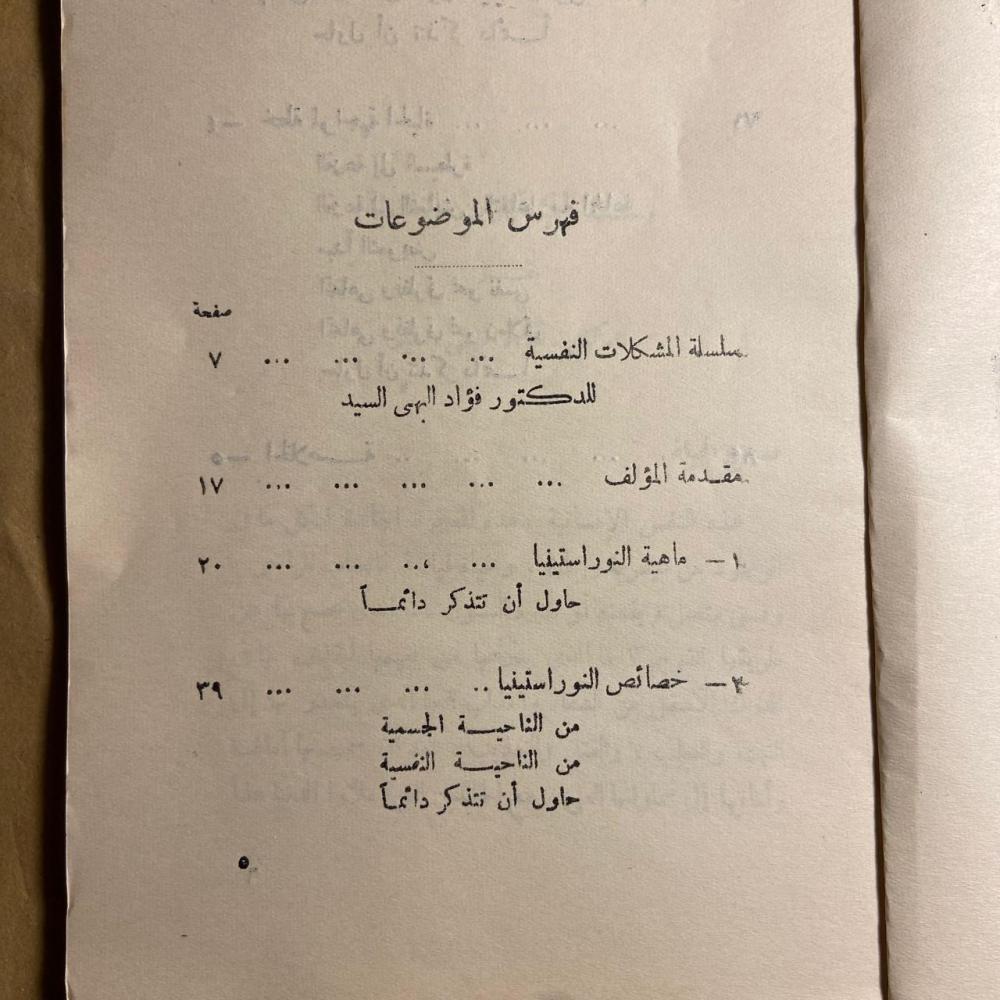 فهرس الموضوعات
صفحة
سلسلة المشكلات النفسية ... ... ... ... ٧
للدكتور فؤاد البهى السيد
مقـدمة المؤلف ... ... ... ... ... ١٧
١ — ماهية النوراستينيا ... ... ... ... ٢٠
حاول أن تتذكر دائمـــاً
٢ — خصائص النوراستينيا .. ... ... ... ٣٩
من الناحيـــة الجسمية
من الناحيـــة النفسية
حاول أن تتذكر دائمـاً
٥